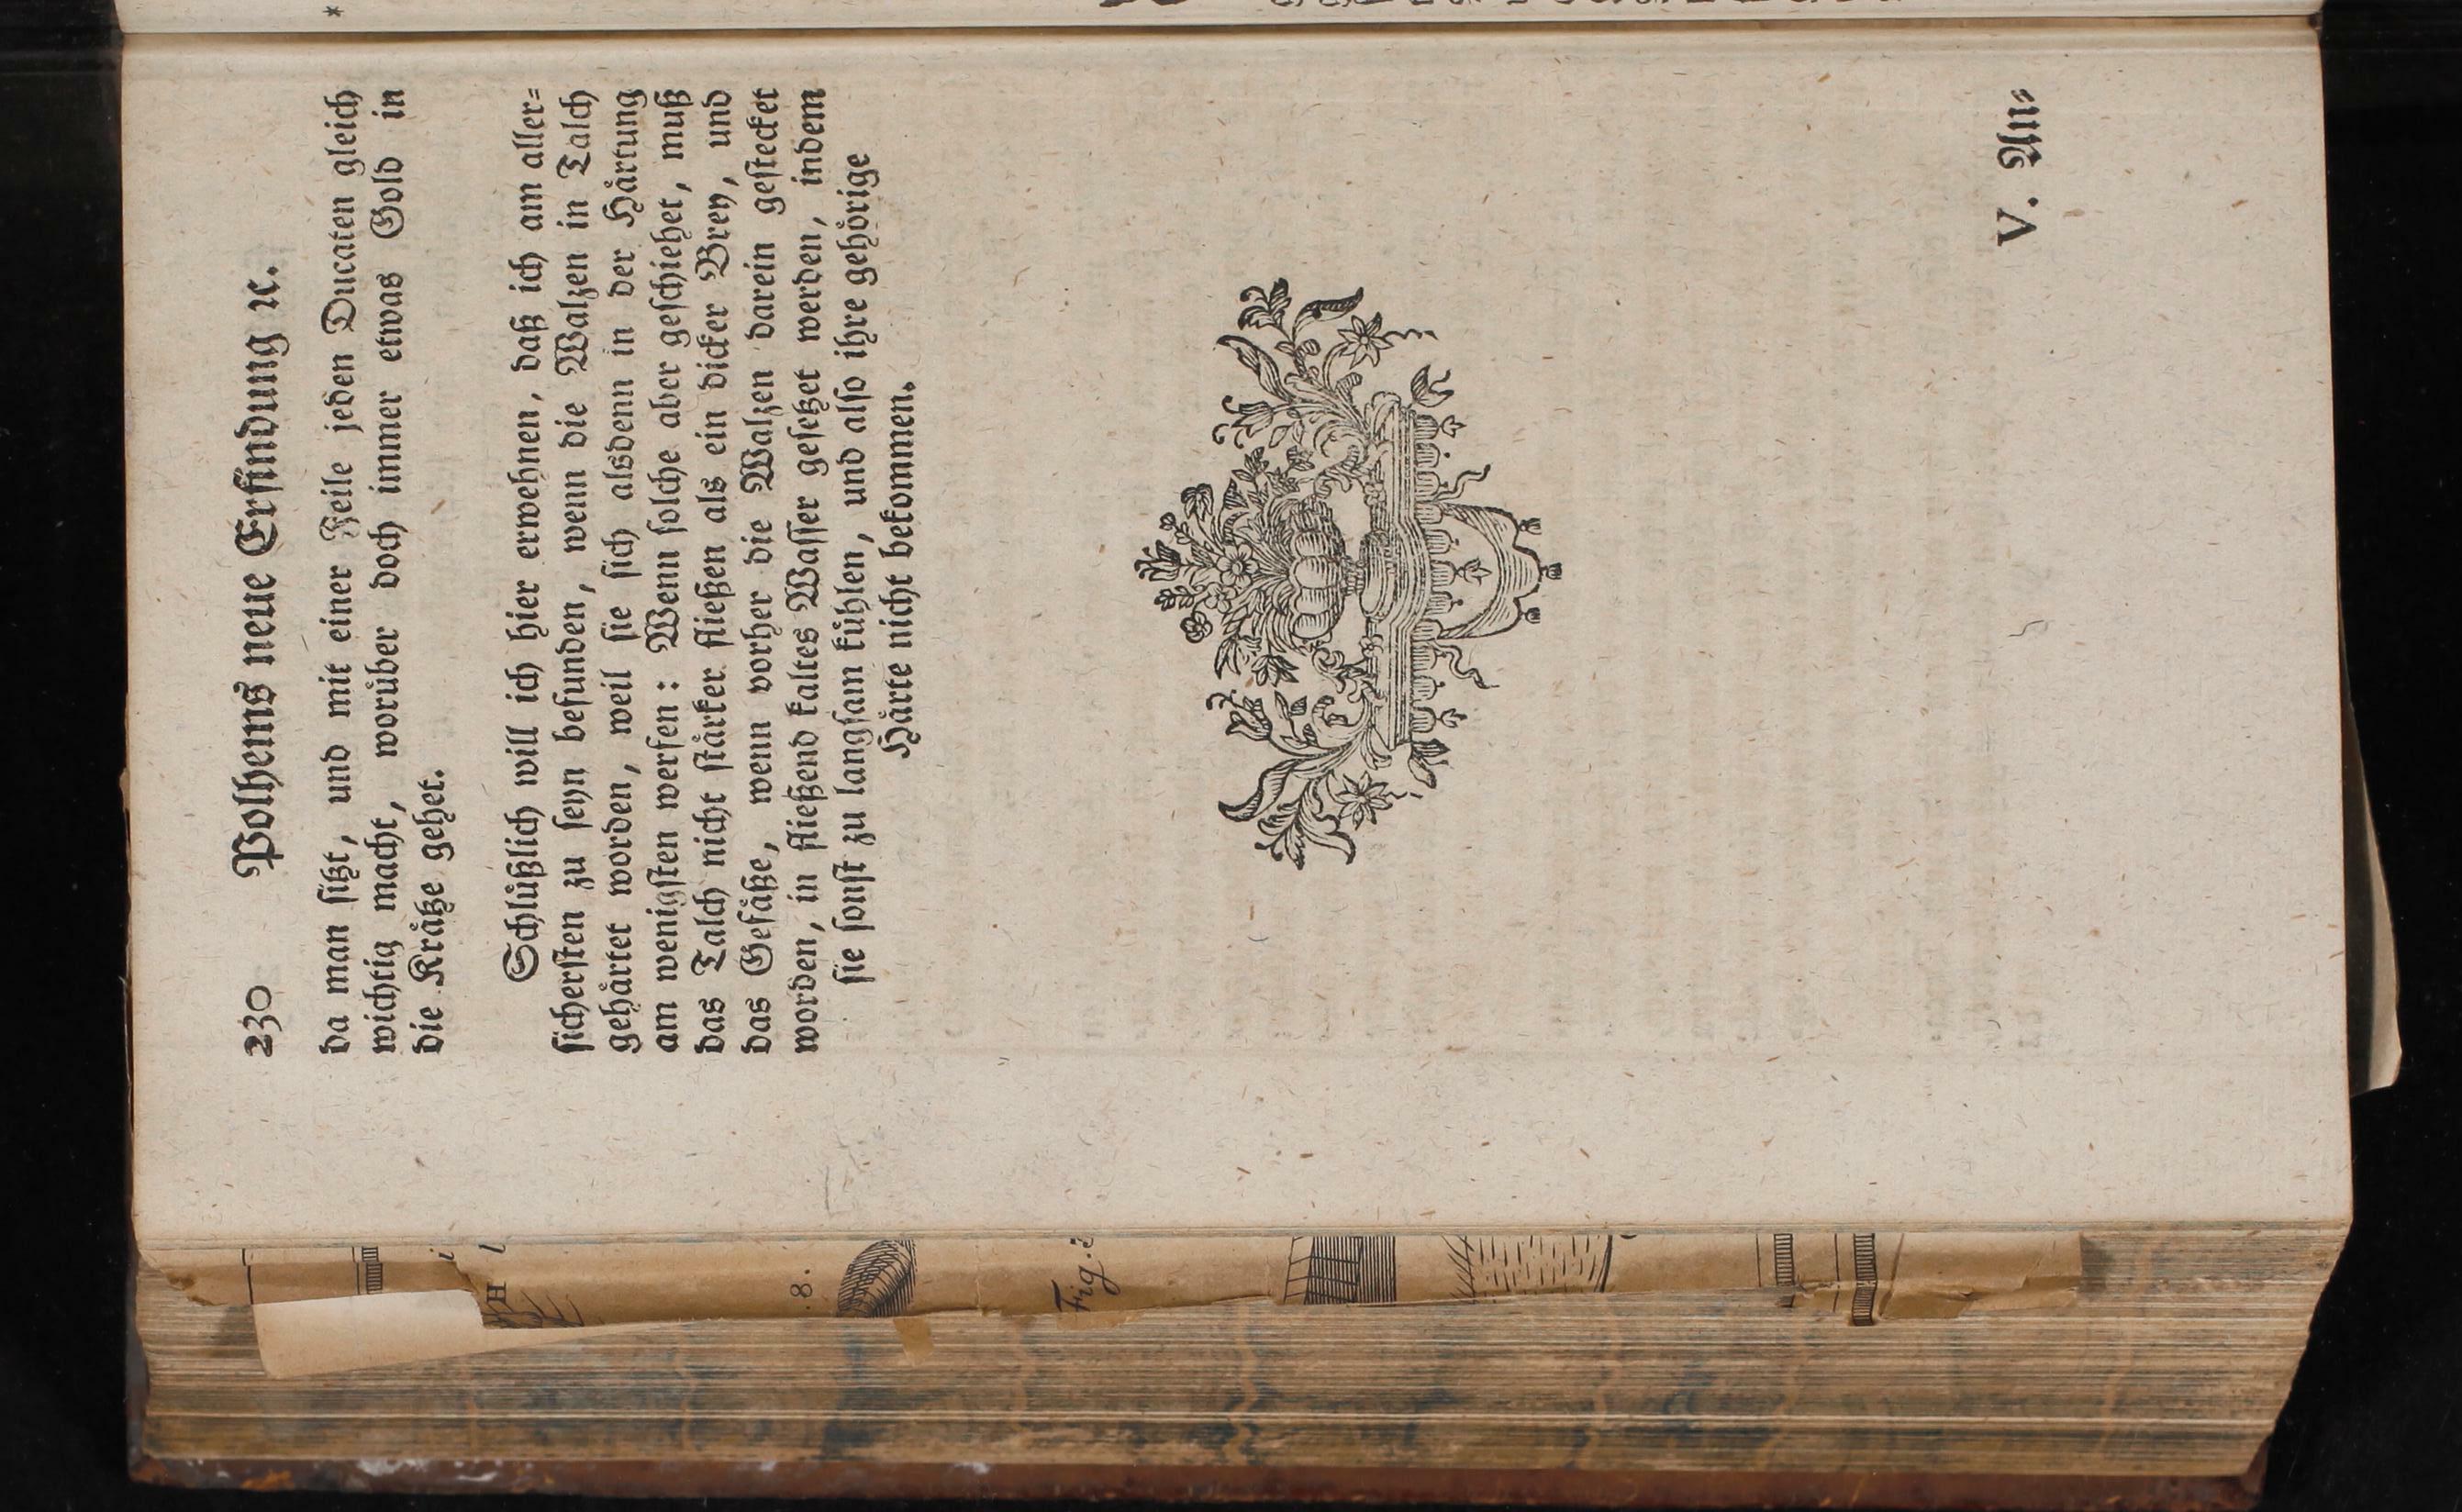 230 Polhems neue Erfindung ꝛc.
da man ſitzt, und mit einer Feile jeden Ducaten gleich
wichtig macht, woruͤber doch immer etwas Gold in
die Kraͤtze gehet.
Schluͤßlich will ich hier erwehnen, daß ich am aller⸗
ſicherſten zu ſeyn befunden, wenn die Walzen in Talch
gehaͤrtet worden, weil ſie ſich alsdenn in der Haͤrtung
am wenigſten werfen: Wenn ſolche aber geſchiehet, muß
das Talch nicht ſtaͤrker fließen als ein dicker Brey, und
das Gefaͤße, wenn vorher die Walzen darein geſtecket
worden, in fließend kaltes Waſſer geſetzet werden, indem
ſie ſonſt zu langſam kuͤhlen, und alſo ihre gehoͤrige
Haͤrte nicht bekommen.
V. An⸗
*
i
l
H
.8.
Fig.